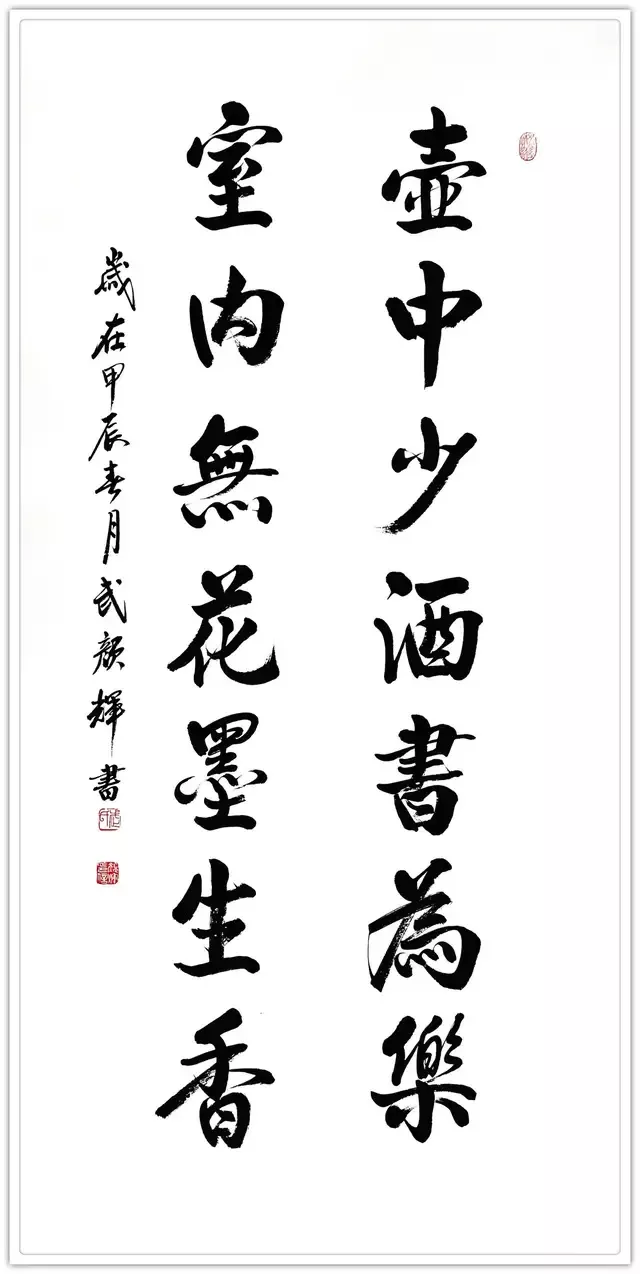 壺中少酒書為樂
室内無花墨生香
歲在甲辰春月武顏輝書